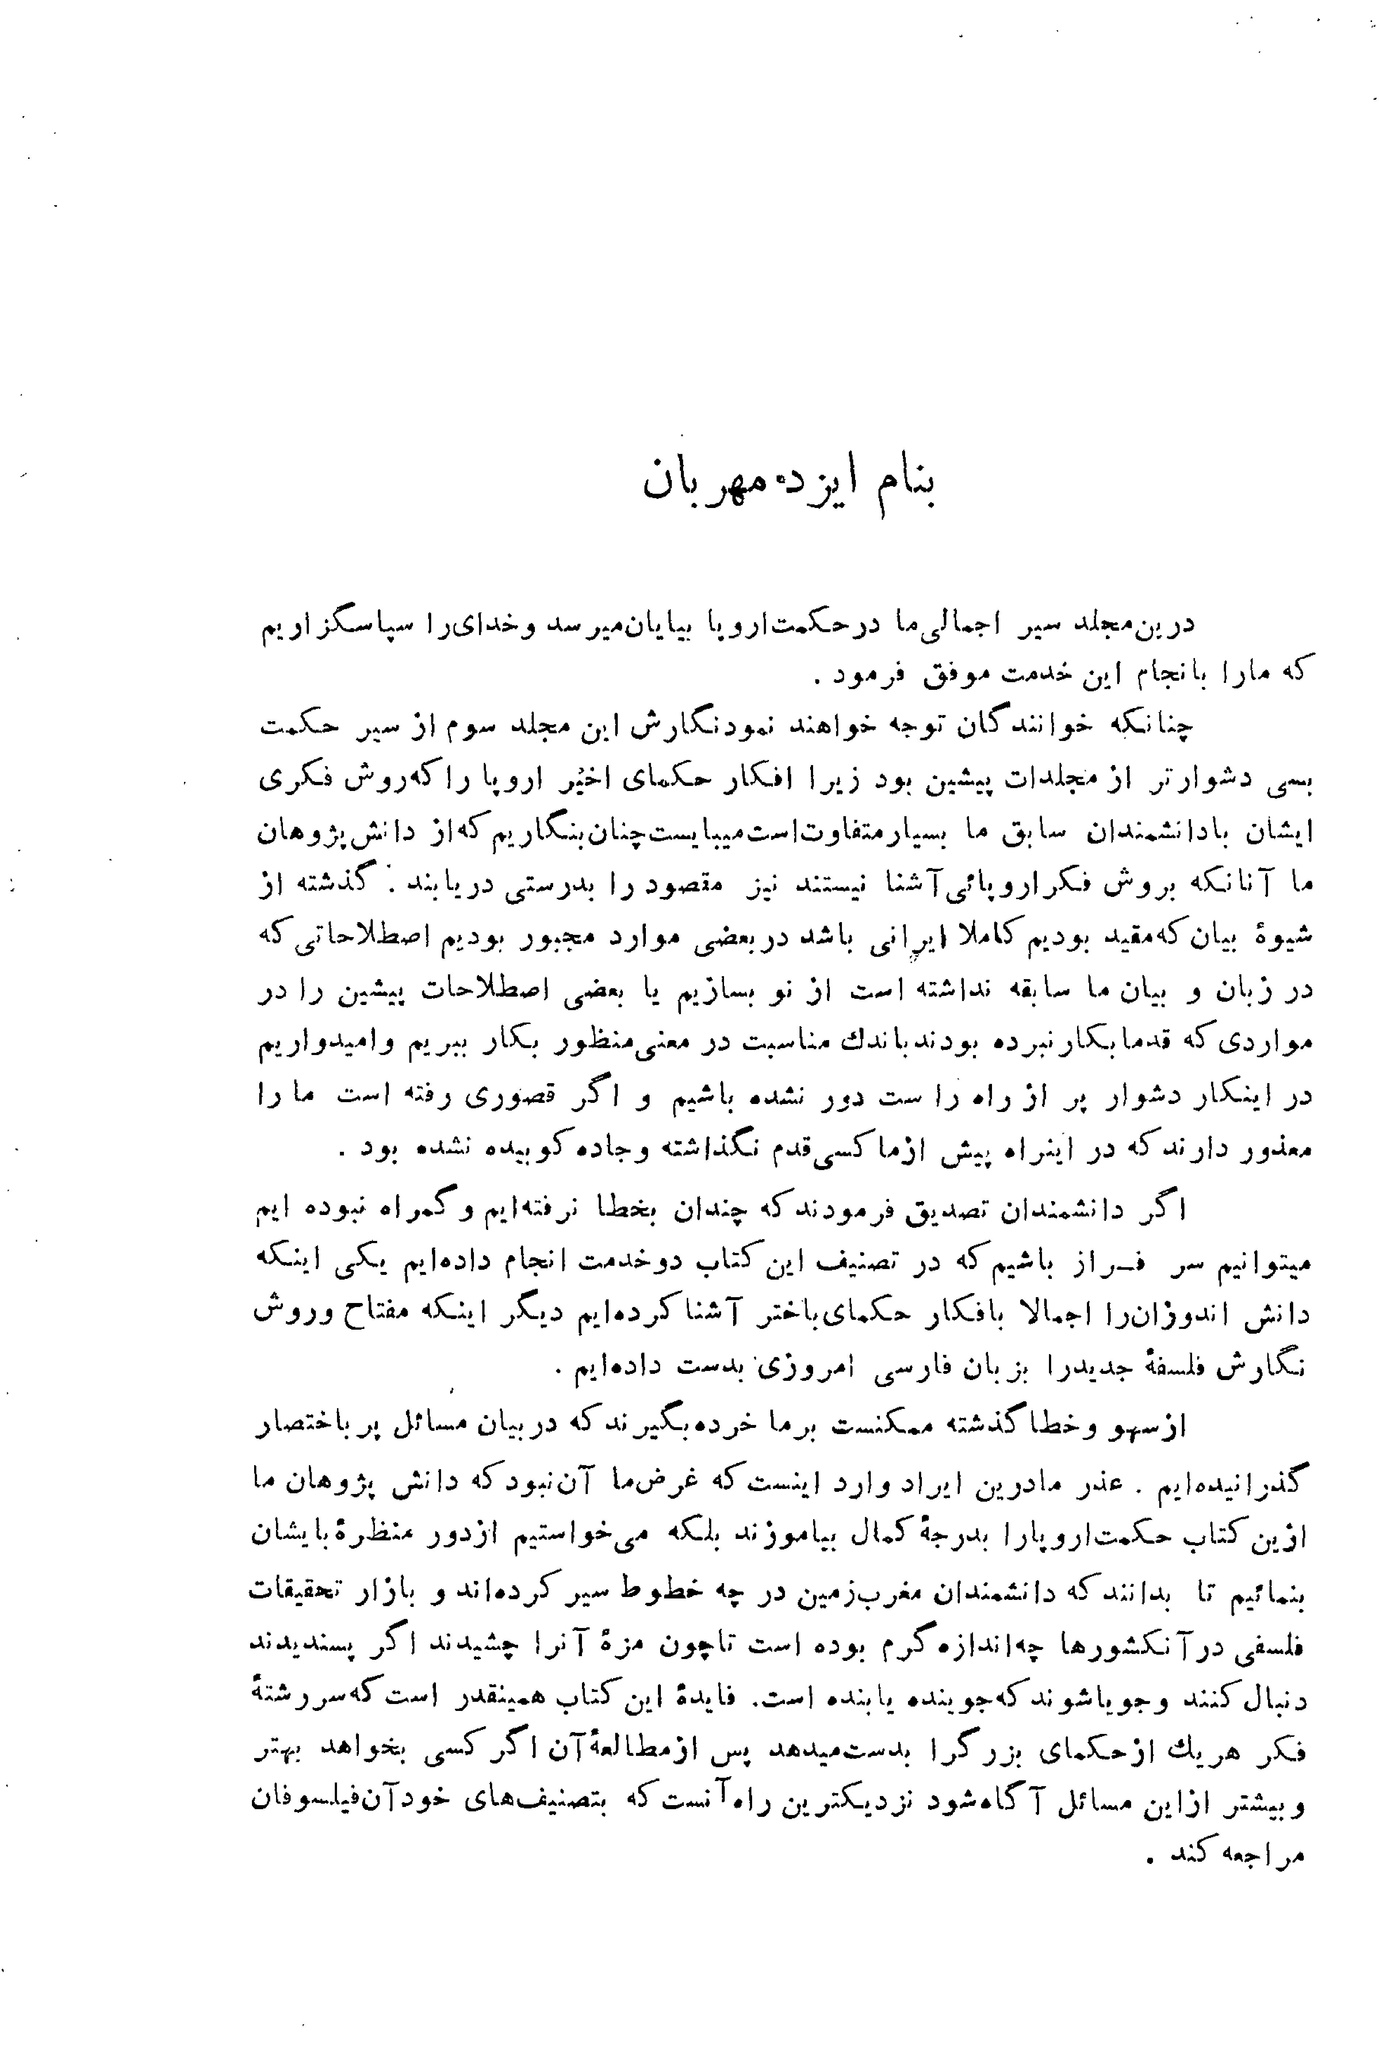 بنام ایزد مهربان
درین مجلد سیر اجمالی ما در حکمت اروپا بپایان میرسد و خدای را سپاسگزاریم
که مارا بانجام این خدمت موفق فرمود .
چنانکه خوانندگان توجه خواهند نمود نگارش این مجلد سوم از سیر حکمت
بسی دشوارتر از مجلدات پیشین بود زیرا افکار حکمای اخیر اروپا را که روش فکری
ایشان با دانشمندان سابق ما بسیار متفاوت است میبایست چنان بنگاریم که از دانش پژوهان
ما آنانکه بروش فکر اروپائی آشنا نیستند نیز مقصود را بدرستی دریابند . گذشته از
شیوهٔ بیان که مقید بودیم کاملا ایرانی باشد در بعضی موارد مجبور بودیم اصطلاحاتی که
در زبان و بیان ما سابقه نداشته است از نو بسازیم یا بعضی اصطلاحات پیشین را در
مواردی که قدما بکار نبرده بودند باندك مناسبت در معنی منظور بکار ببریم و امیدواریم
در اینکار دشوار پر از راه راست دور نشده باشیم و اگر قصوری رفته است ما را
معذور دارند که در اینراه پیش از ما کسی قدم نگذاشته و جاده کوبیده نشده بود .
اگر دانشمندان تصدیق فرمودند که چندان بخطا نرفته‌ایم و گمراه نبوده ایم
میتوانیم سر فـراز باشیم که در تصنیف این کتاب دو خدمت انجام داده‌ایم یکی اینکه
دانش اندوزان را اجمالا با فکار حکمای باختر آشنا کرده‌ایم دیگر اینکه مفتاح وروش
نگارش فلسفهٔ جدیدرا بزبان فارسی امروزی بدست داده‌ایم .
از سهو و خطا گذشته ممکنست برما خرده بگیرند که در بیان مسائل پر باختصار
گذرانیده‌ایم . عذر مادرین ایراد وارد اینست که غرض ما آن نبود که دانش پژوهان ما
ازین کتاب حکمت اروپارا بدرجهٔ کمال بیاموزند بلکه می‌خواستیم از دور منظرهٔ بایشان
بنمائیم تا بدانند که دانشمندان مغرب زمین در چه خطوط سیر کرده‌اند و بازار تحقیقات
فلسفی در آنکشورها چه اندازه گرم بوده است تا چون مزهٔ آنرا چشیدند اگر پسندیدند
دنبال کنند و جویا شوند که جوینده یابنده است. فایدهٔ این کتاب همینقدر است که سررشتهٔ
فکر هریك از حکمای بزرگ را بدست میدهد پس از مطالعهٔ آن اگر کسی بخواهد بهتر
و بیشتر از این مسائل آگاه شود نزدیکترین راه آنست که بتصنیف‌های خود آن فیلسوفان
مراجعه کند .